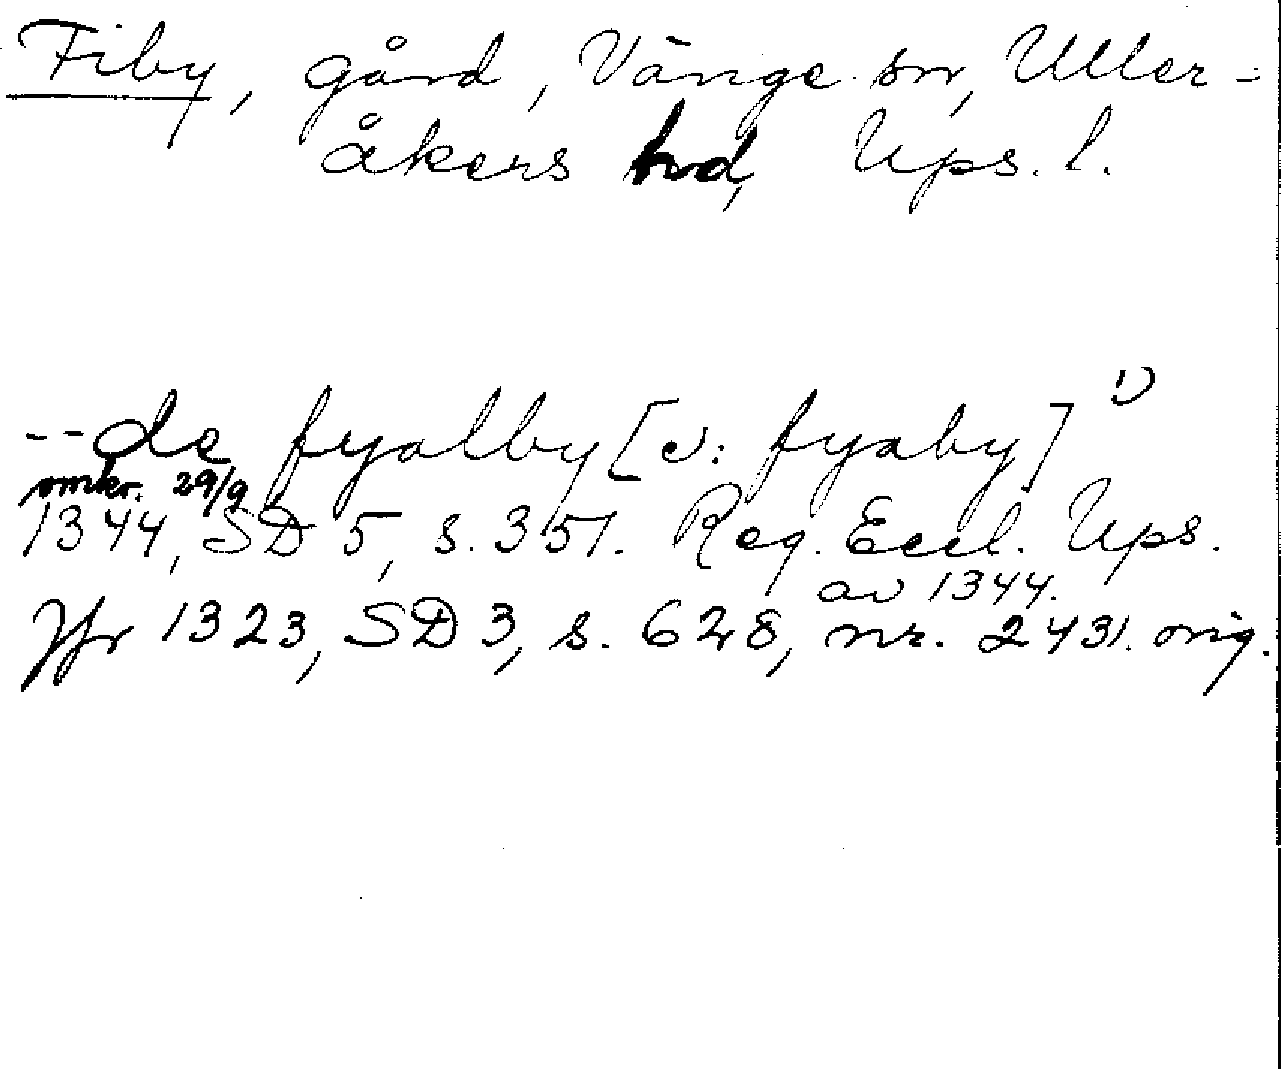 Fiby, gård, Vänge sn, Uller-
åkers hd, Ups. l.
--de fyalby [v: fyaby] 1)
omkr. 29/9
1344, SD 5, s. 351. Reg. Eccl. Ups.
av 1344.
Jfr 1323, SD 3, s. 628, nr. 2431. orig.